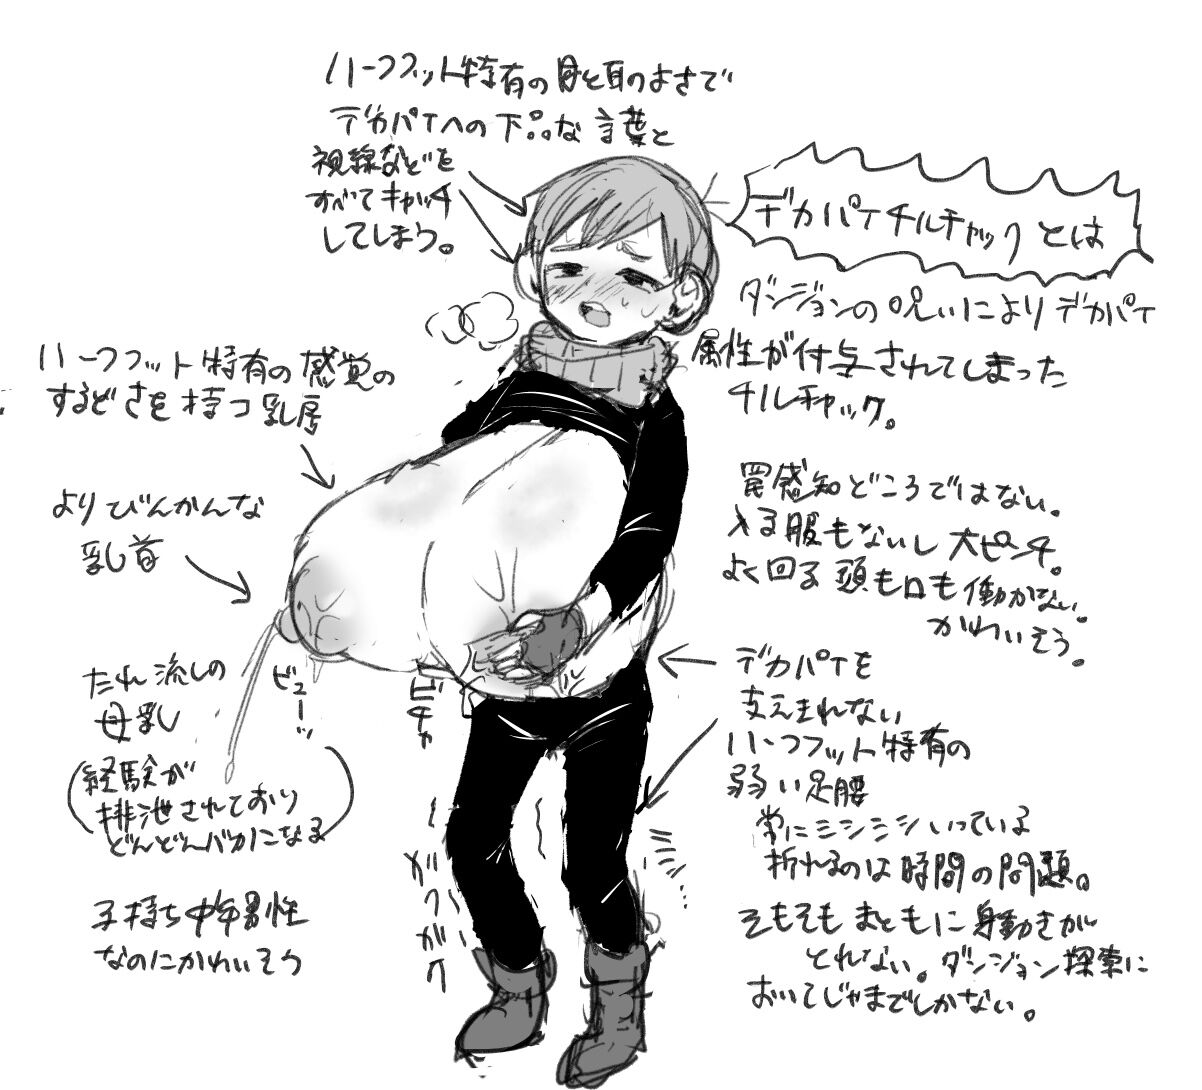 デカパイチルチャックとは
ダンジョンの呪いによりデカパイ
属性が付与されてしまった
チルチャック。
罠感知どころではない。
入る服もないし大ピンチ。
よく回る頭も口も働かない。
かわいそう。
ハーフフット特有の目と耳のよさで
デカパイへの下品な言葉と
視線などを
すべてキャッチ
してしまう。
ハーフフット特有の感覚の
するどさを持つ乳房
よりびんかんな
乳首
たれ流しの
母乳
(経験が
排泄されており
どんどんバカになる)
子持ち中年男性
なのにかわいそう
ビューーッ
ビチャ
ガクガク
デカパイを
支えきれない
ハーフフット特有の
弱い足腰
常にミシミシいっている
折れるのは時間の問題。
そもそもまともに身動きが
とれない。ダンジョン探索に
おいてじゃまでしかない。